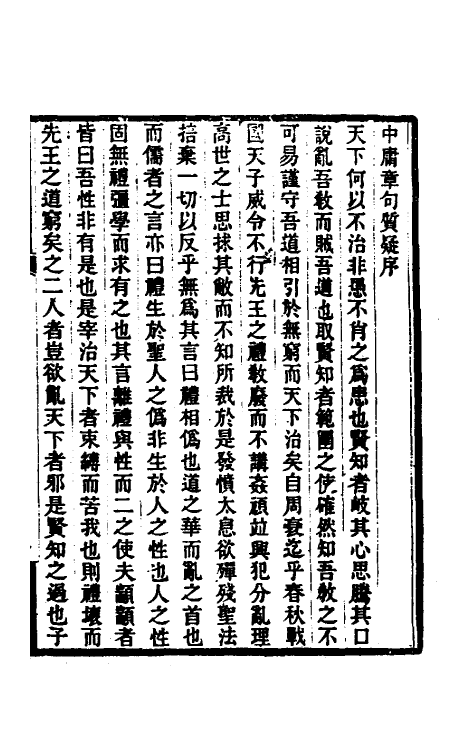 中庸章句質疑序
天下何以不治非愚不肖之為患也賢知者岐其心思騰其口
說亂吾敎而賊吾道也取賢知者範圍之使確然知吾敎之不
可易謹守吾道相引於無窮而天下治矣自周衰迄乎春秋戰
國天子威令不行先王之禮敎廢而不講姦頑竝興犯分亂理
高世之士思捄其敝而不知所裁於是發憤太息欲殫殘聖法
掊棄一切以反乎無為其言曰禮相偽也道之華而亂之首也
而儒者之言亦曰禮生於聖人之偽非生於人之性也人之性
固無禮彊學而求有之也其言離禮與性而二之使夫顓顓者
皆曰吾性非有是也是宰治天下者束縛而苦我也則禮壞而
先王之道窮矣之二人者豈欲亂天下者邪是賢知之過也子